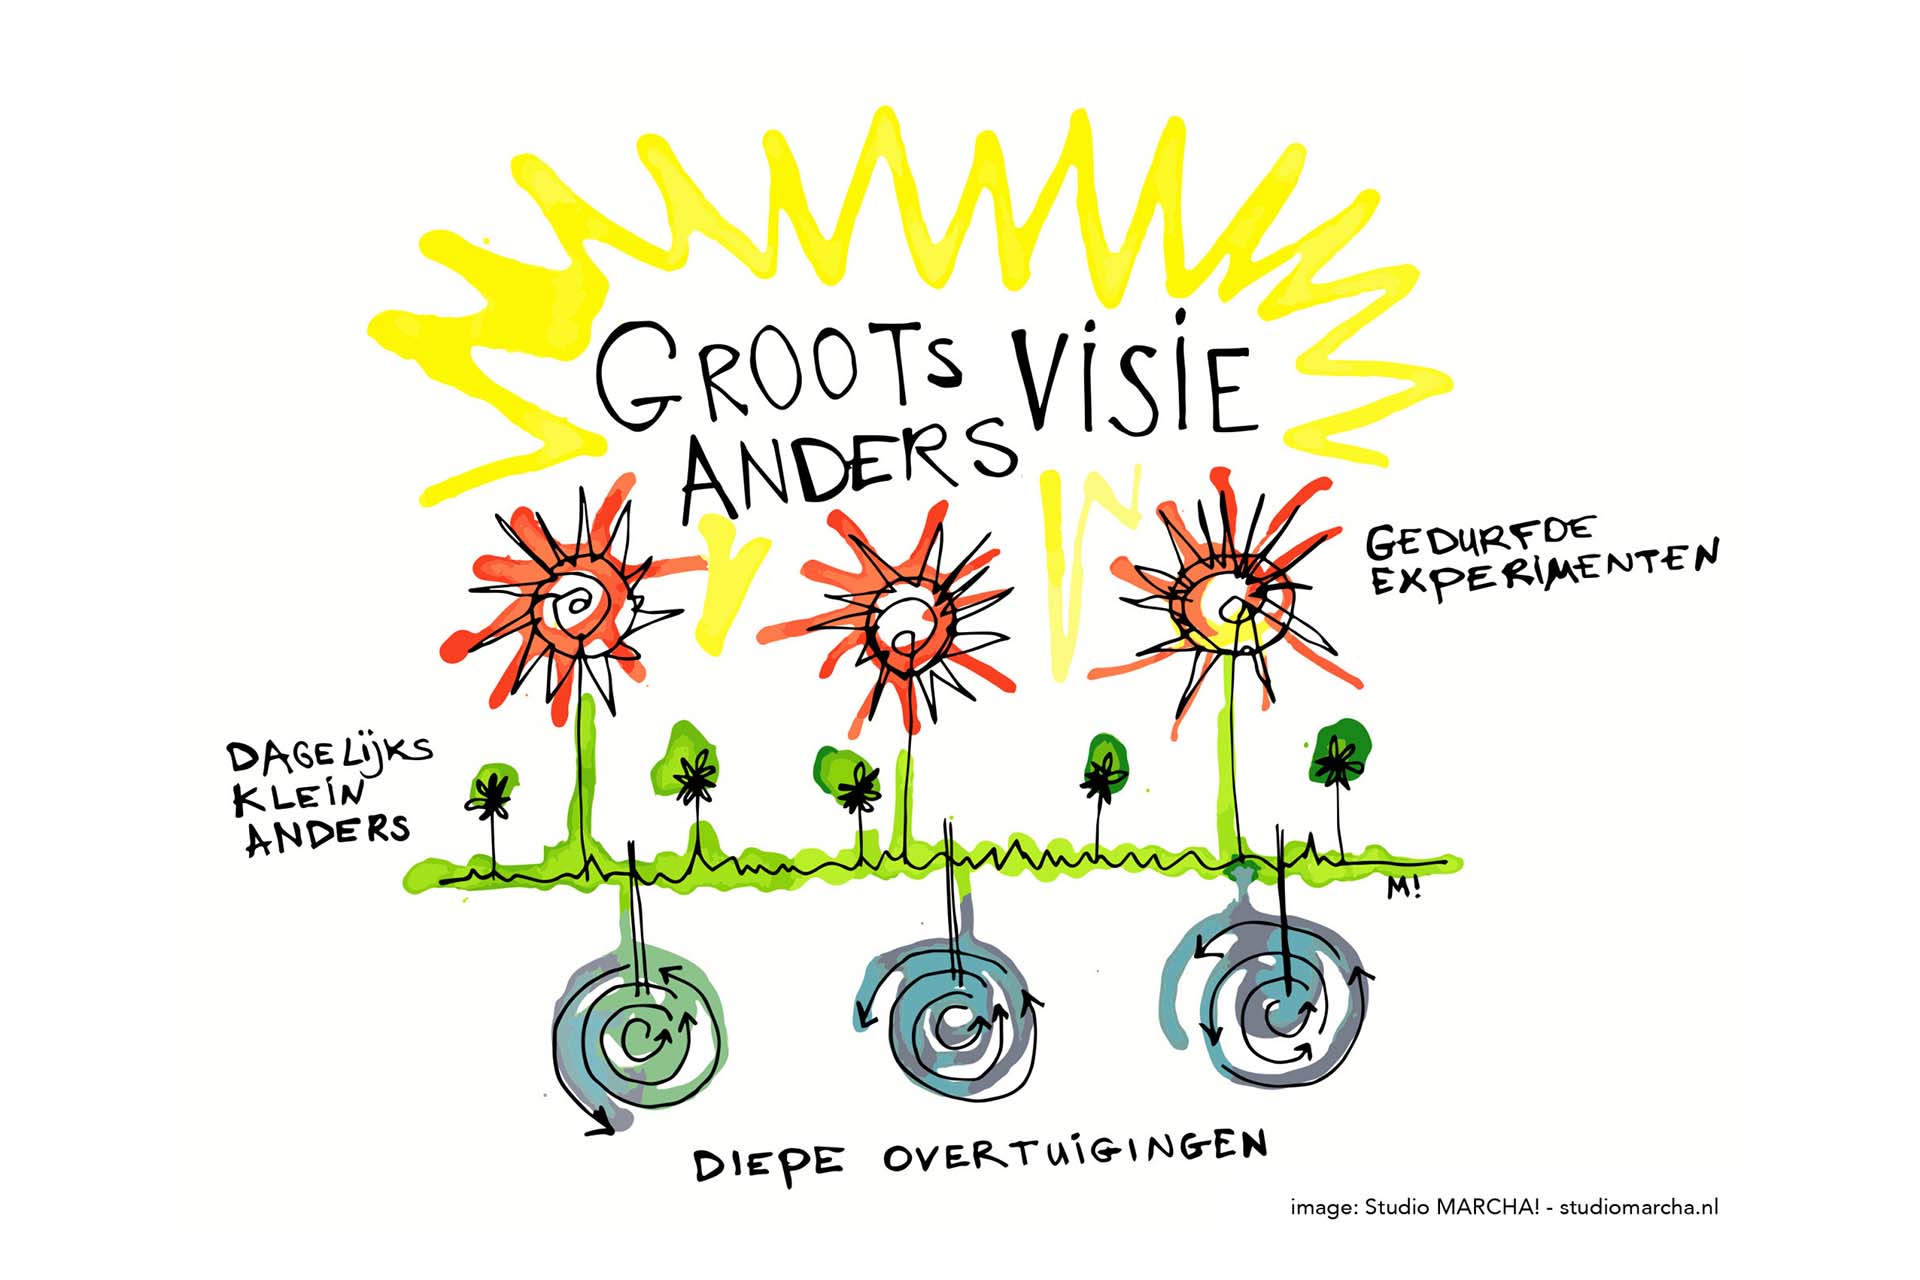 GROOTS VISIE
ANDERS
GEDURFDE
EXPERIMENTEN
DAGELIJKS
KLEIN
ANDERS
M!
DIEPE OVERTUIGINGEN
image: Studio MARCHA! - studiomarcha.nl